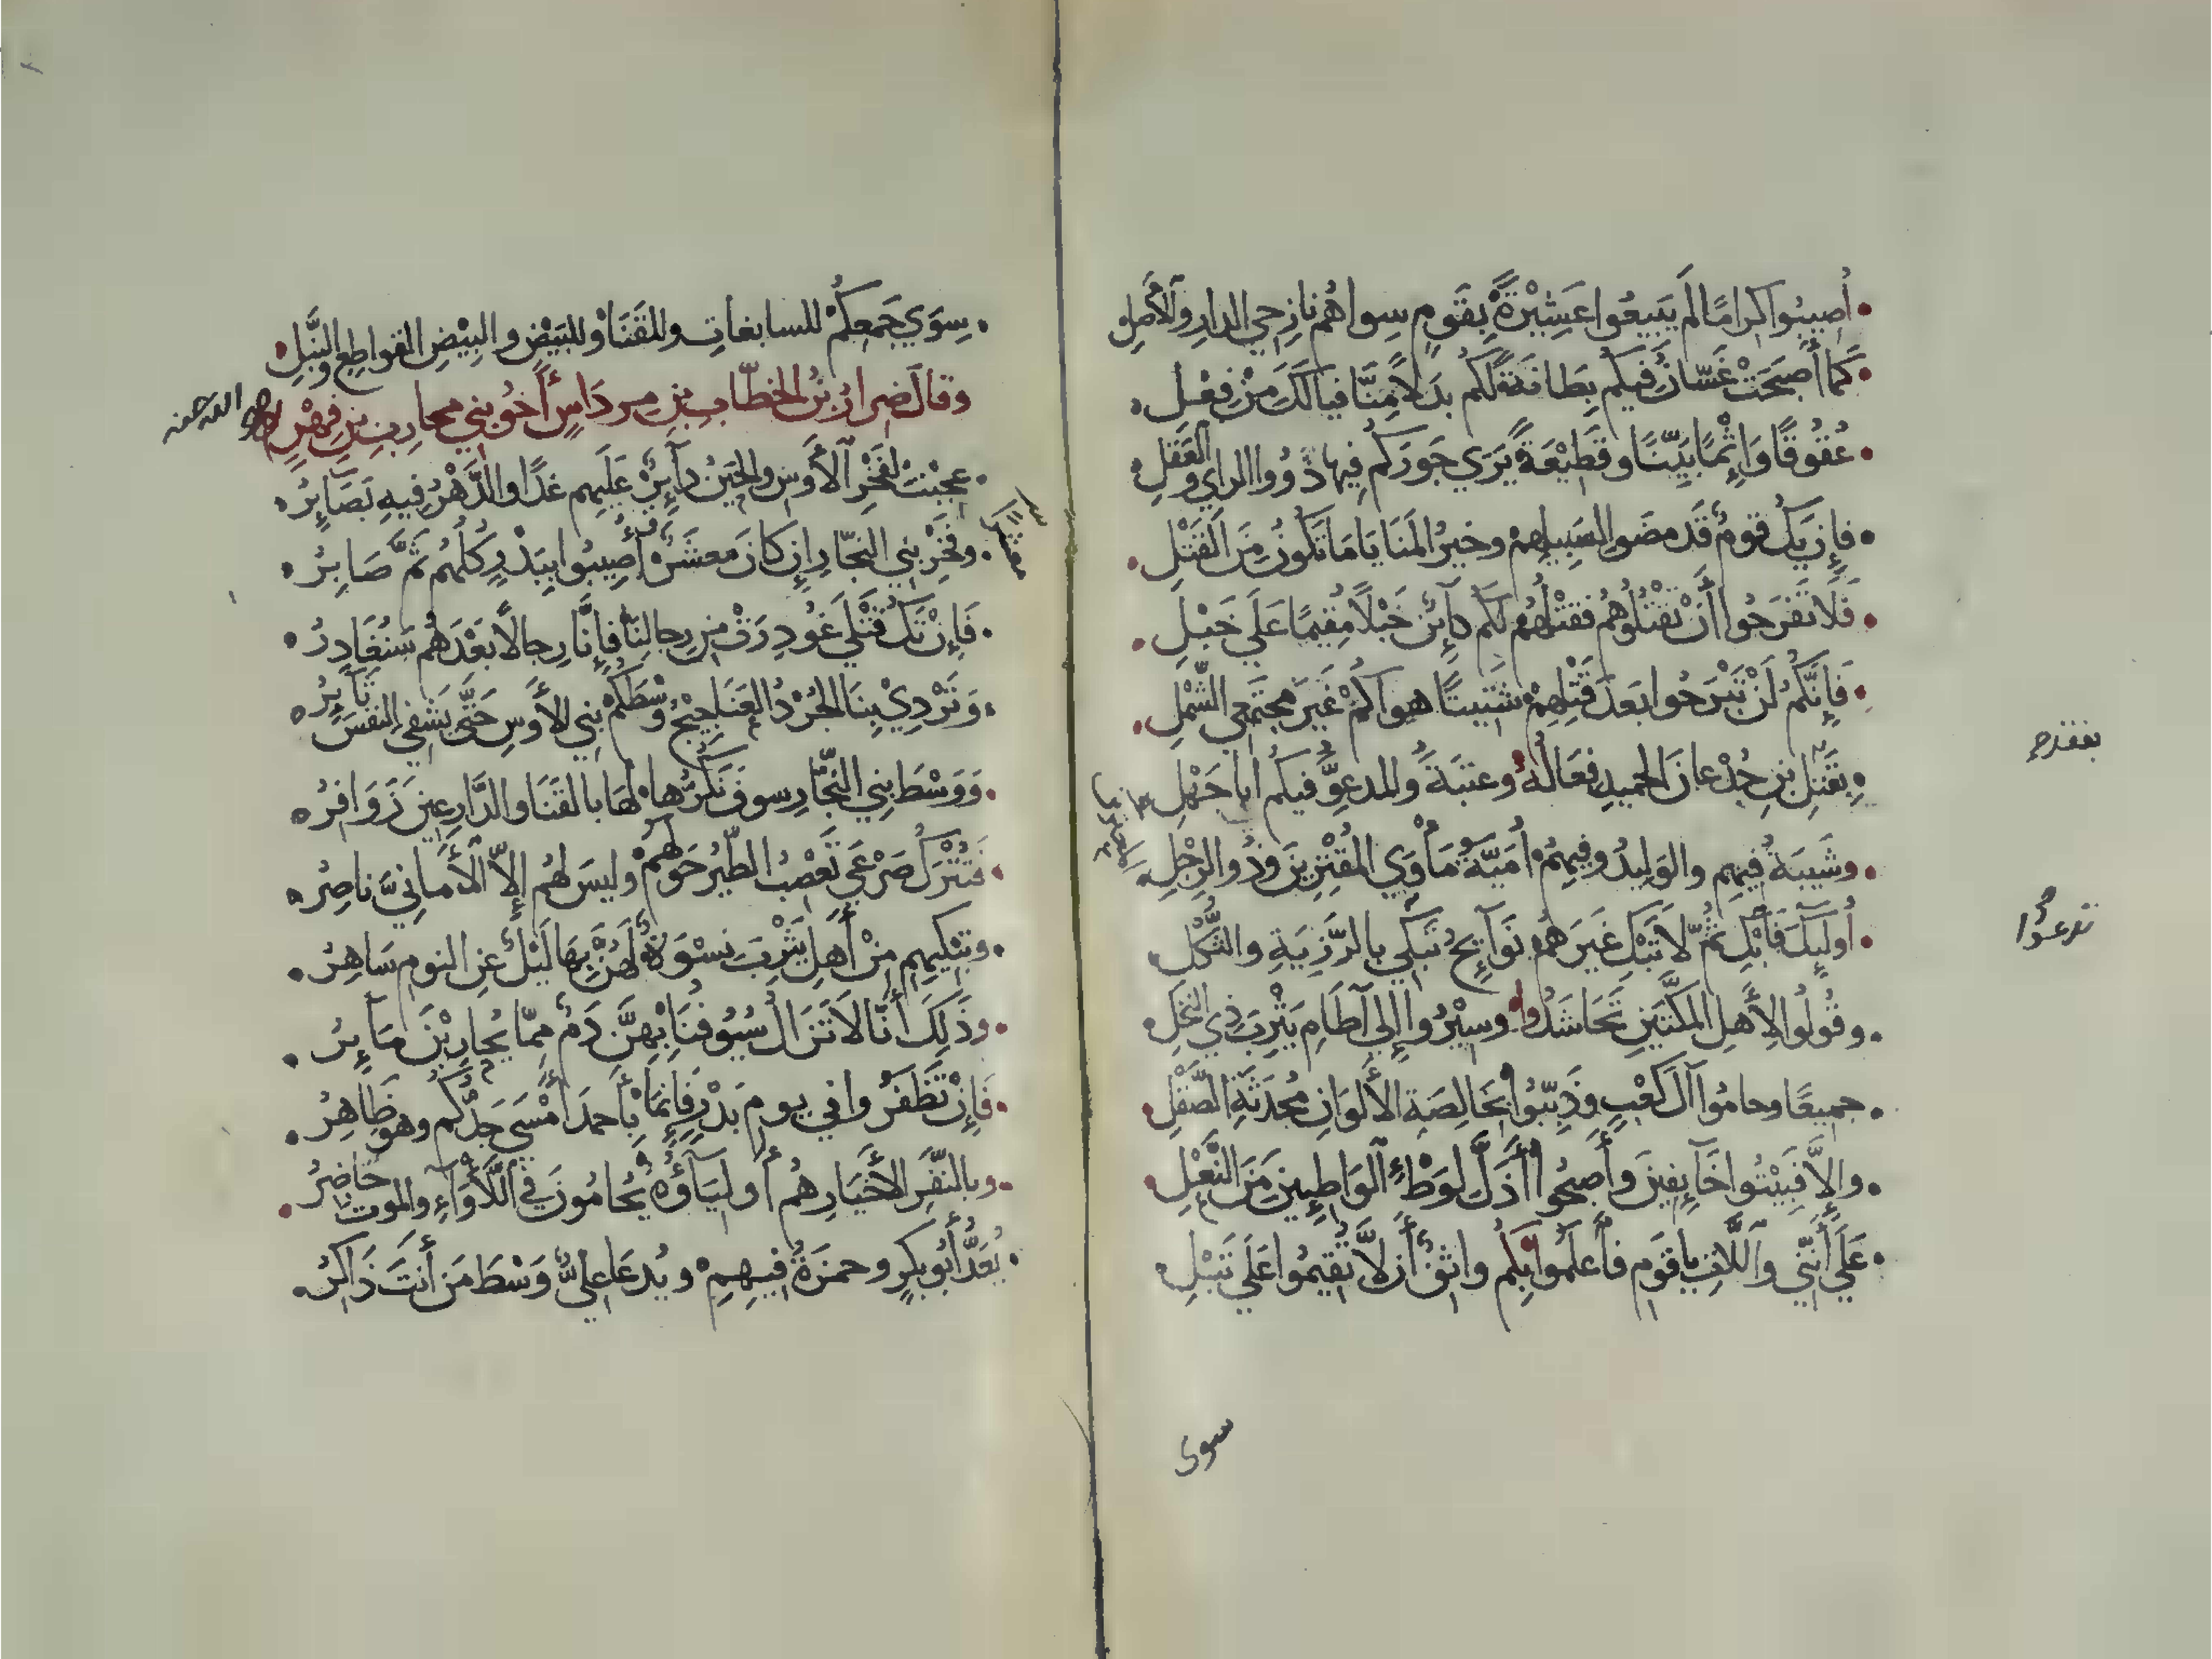 أُصِيبُوا كِرَامًا لَم يَبِيعُوا عَشِيْرَةً بِقَومٍ سِواهُم نازِحِي الدارِ وَالأَصلِ
كَمَا أَصبَحَتْ غَسَّانُ فِيكُم بِطَانَةً لَكُم بَدَلاً مِنَّا فيالَكَ مِنْ فِعْلِ
عُقُوقًا وَإِثْمًا بَيِّنًا وقَطِيْعَةً يَرَي جَورَكُم فِيها ذَوُوا الراي والعَقلِ
فإِن يَكُ قومٌ قَد مضَوا لسَبِيلِهِمْ وخيرُ المَنَايَا مَا تَكُونُ مِنَ القَتْلِ
فَلَا تَفرَحُوا أَنْ تَقْتُلُوهُم فقتْلُهُم لَكُم كَآئِنٌ خَبْلاً مُقِيمًا عَلَي خَبْلِ
فَإِنَّكُم لَنْ تَبْرَحُوا بَعدَ قَتْلِهِمْ شَتِيتًا هواكُمْ غَيرَ مجتَمِعِي الشَّمْلِ
بِقَتلِ بنِ جُدْعانَ الحميدِ فِعَالُهُ وعتبَةَ والمدعوِّ فيكُم أبا جَهْلِ
وشَيبَةُ فيهِم والوَلِيدُ وفِيهِمُ أُمَيَّةُ مَأوَي المُقْتِرِينَ وذُو الرِّجْلِ
أُولَئِكَ فَابْكِ ثُمَّ لاَ تَبْكِ غَيرَهُم نَوَآئِحُ تَبكي بالرَّزِيَةِ والثُّكْلِ
وقُولُوا لِأَهلِ المَكَّتَينِ تَحَاشَدُوا وسِيْرُوا إِلي آطَامِ يَثْرِبَ ذِي النخلِ
جميعًا وحامُوا آلَ كَعْبٍ وذَبِّبُوا بخالِصَةِ الأَلوَانِ مُحدَثَةِ الصَّقْلِ
وإِلاَّ فَبِيْتُوا خَآئِفِينَ وأَصبحُوا أَذَلَّ لوَطْءِ الوَاطِئِينَ مِنَ النَّعْلِ
عَلَي أَنَّنِي واللَّاتِ يا قَومِ فَأعلَموا بِكُم واثِقٌ أَن لاَّ تُقِيمُوا عَلَي تَبْلِ
سِوَي جَمعِكُمْ للسابغاتِ وللقَنَا وللبَيْضِ والبِيْضِ القواطِعِ والنَّبلِ
وقالَ ضِرارُ بنُ الخطَّابِ بنِ مِردَاسٍ أَخُو بنِي محارِبِ بنِ فِهْرٍ
عجِبتُ لفَخْرِ الأَوسِ والحَيْنُ دَآئِرٌ عَلَيهِم غدًا والدَّهْرُ فِيهِ بَصَائِرُ
وفخْرِ بني النجَّارِ إِن كانَ معشَرٌ أُصِيبُوا ببَدْرٍ كُلُّهُم ثَمَّ صَابِرُ
فَإِنْ تَكُ قَتْلَي غُودِرَتْ مِن رِجالِنَا فإِنَّا رِجالاً بَعْدَهُم سَنُغَادِرُ
وَتَرْدِيْ بِنَا الجُرْدُ العَنَاجِيْجُ وَسْطَكُمْ بنِي الأَوسِ حَتَّى يَشفي النفسَ ثَآئِرُ
وَوَسْطَ بنِي النجَّارِ سوفَ نَكُرُّها لَهَا بالقَنَا والدَّارِعِينَ زَوَافِرُ
فَنَتْرُكُ صَرْعَي تَعْصِبُ الطَّيرُ حَولَهُمْ وليسَ لهُم إِلاَّ الأَمانِيَّ ناصِرُ
وتبْكيهِم مِنْ أَهلِ يَثْرِبَ نِسْوَةٌ لَهُنَّ بِهَا لَيْلٌ عنِ النومِ سَاهِرُ
وذَلِكَ أَنَّا لاَ تَزَالُ سُيُوفُنَا بِهِنَّ دَمٌ مِمَّا يُحارِبْنَ مَآئِرُ
فَإِنْ تَظفَرُوا في يومِ بَدْرٍ فَإِنَّمَا بأَحمَدَ أَمْسَي جَدُّكُم وهو ظَاهِرُ
وبالنَّفَرِ الأَخيَارِ هُم أَولِيَآؤُهُ يُحَامُونَ في اللَّأْوَاءِ والموتُ حَاضِرُ
يُعَدُّ أَبُو بكرٍ وحمزَةُ فِيهِمِ ويُدعَا عليٌّ وَسْطَ مَن أَنتَ ذَاكِرُ
سوى